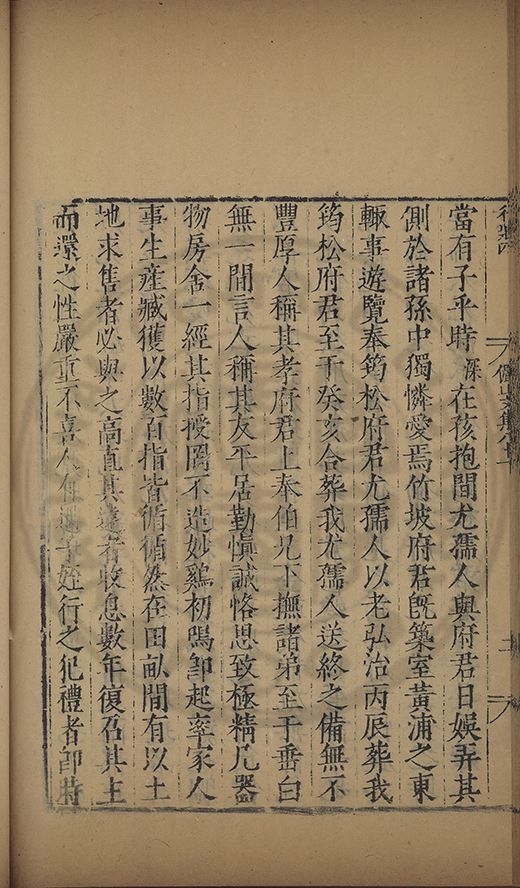 當有子乎時深在孩抱間尤孺人與府君日娛弄其
側於諸孫中獨憐愛焉竹坡府君旣築室黃浦之東
輙事遊覽奉筠松府君尤孺人以老弘治丙辰葬我
筠松府君至于癸亥合葬我尤孺人送終之備無不
豐厚人稱其孝府君上奉伯兄下撫諸弟至于垂白
無一間言人稱其友平居勤慎誠恪思致極精凡器
物房舍一經其指授罔不造妙鷄初鳴卽起率家人
事生產臧獲以數百指皆循循然在田畝間有以土
地求售者必與之高直其遠者收息數年復召其主
而還之性嚴重不喜人有過子姪行之犯禮者卽持